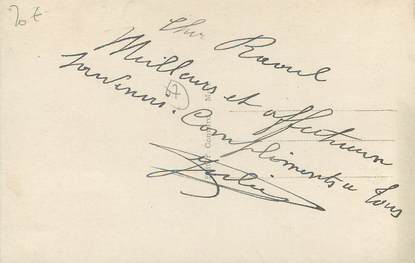 20 €
Cher Raoul
Meilleurs et affectueux
souvenirs. Compliments a tous